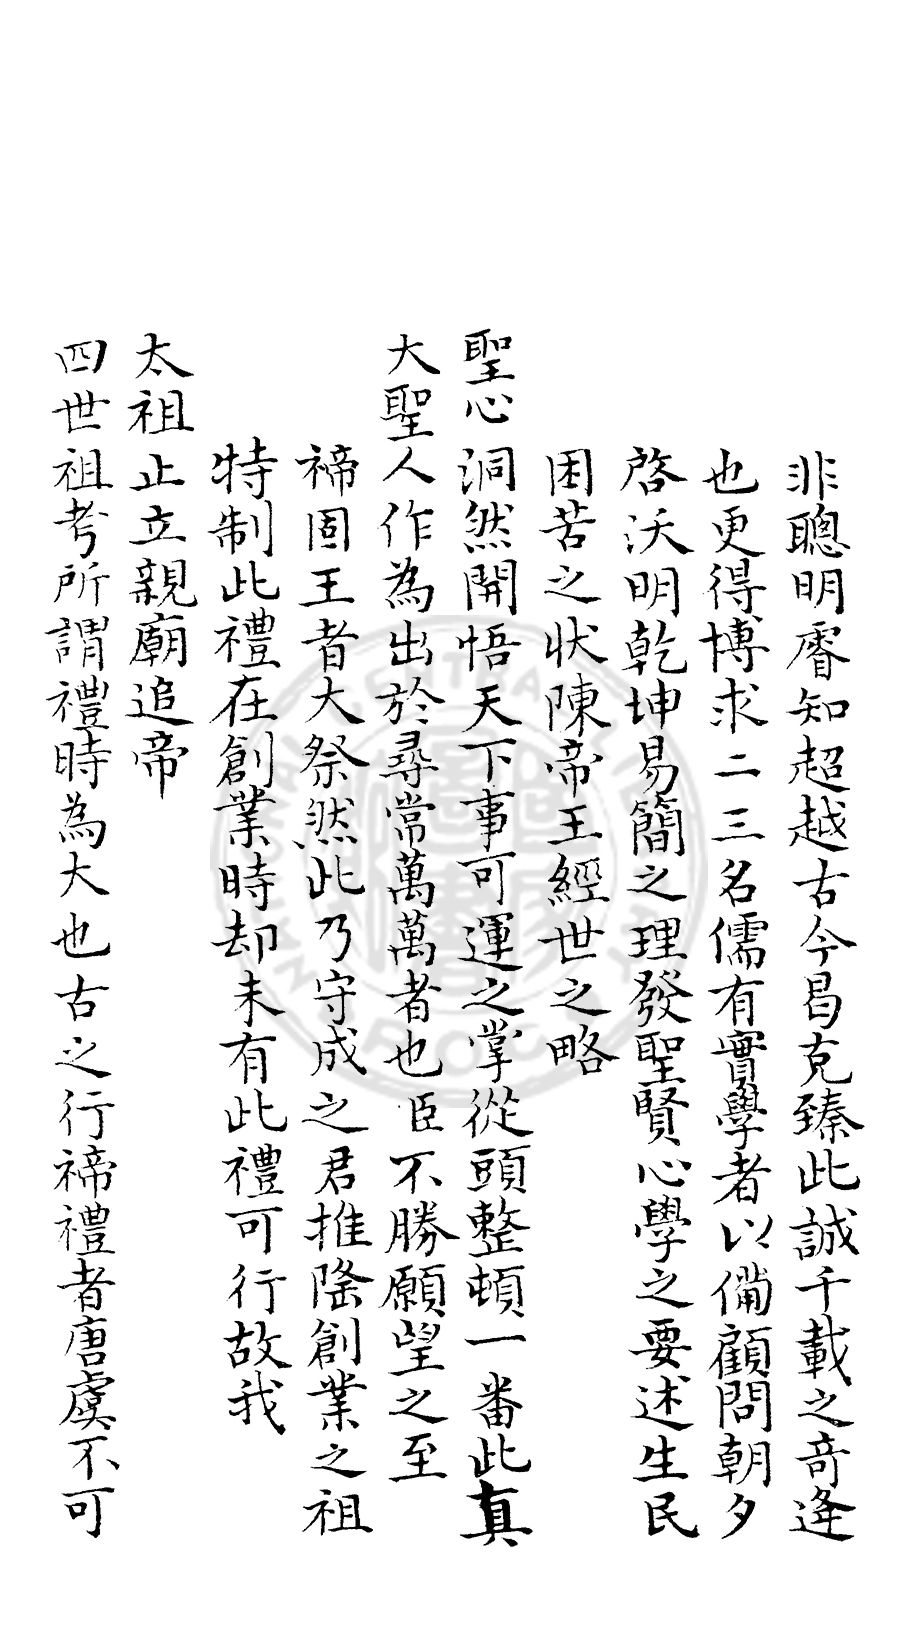 非聰明睿知超越古今曷克臻此誠千載之竒逢
也更得博求二三名儒有實學者以備顧問朝夕
啓沃明乾坤易簡之理發聖賢心學之要述生民
困苦之状陳帝王經世之略
聖心洞然開悟天下事可運之掌從頭整頓一番此真
大聖人作為出於尋常萬萬者也臣不勝願望之至
禘固王者大祭然此乃守成之君推隆創業之祖
特制此禮在創業時却未有此禮可行故我
太祖止立親廟追帝
四世祖考所謂禮時為大也古之行禘禮者唐虞不可